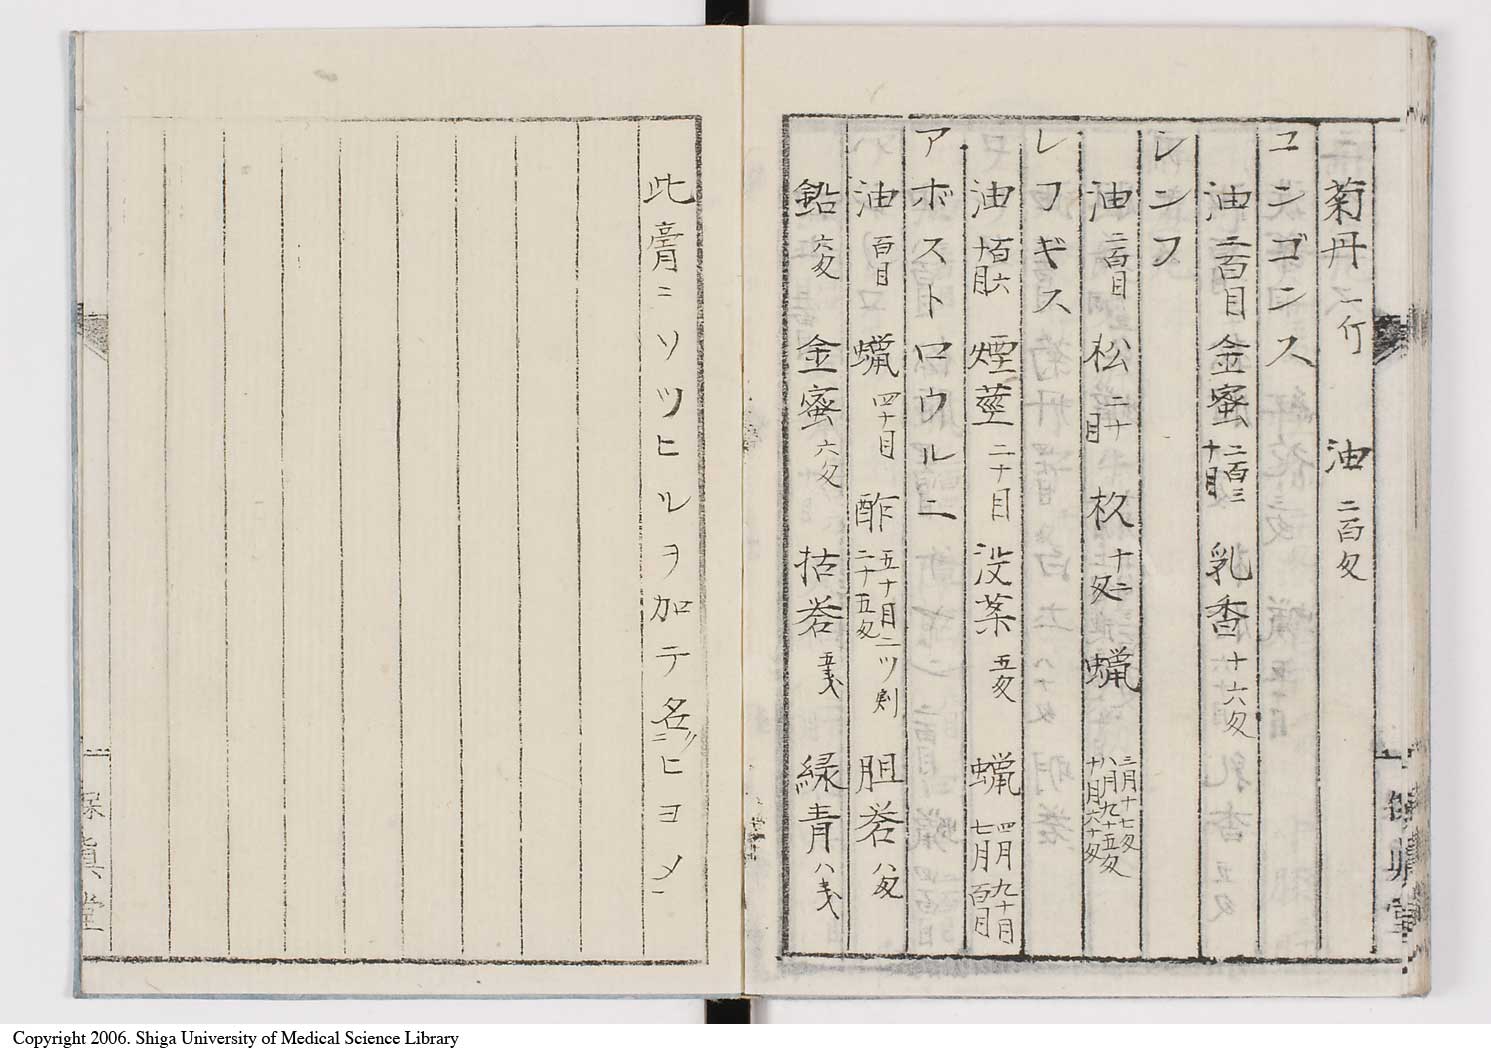 菊丹 一斤 油 二百匁
ユンゴンス
油 二百目 金蜜 二百三十目 乳香 十六匁
シンフ
油 二百目 松 二十目 杦 十二匁 蝋 三月十七匁 八月九十五匁 十月六十匁
レフギス
油 百六十目 煙莖 二十目 没薬 五匁 蝋 四月九十目 七月百目
アボストロウルニ
油 百目 蝋 四十目 酢 五十目二ツ割 二十五匁 胆礬 八匁
鉛 六匁 金蜜 六匁 枯礬 五戔 緑青 八戔
此膏ニソツヒルヲ加テ名ニツヒヨメニ
Copyright 2006. Shiga University of Medical Science Library